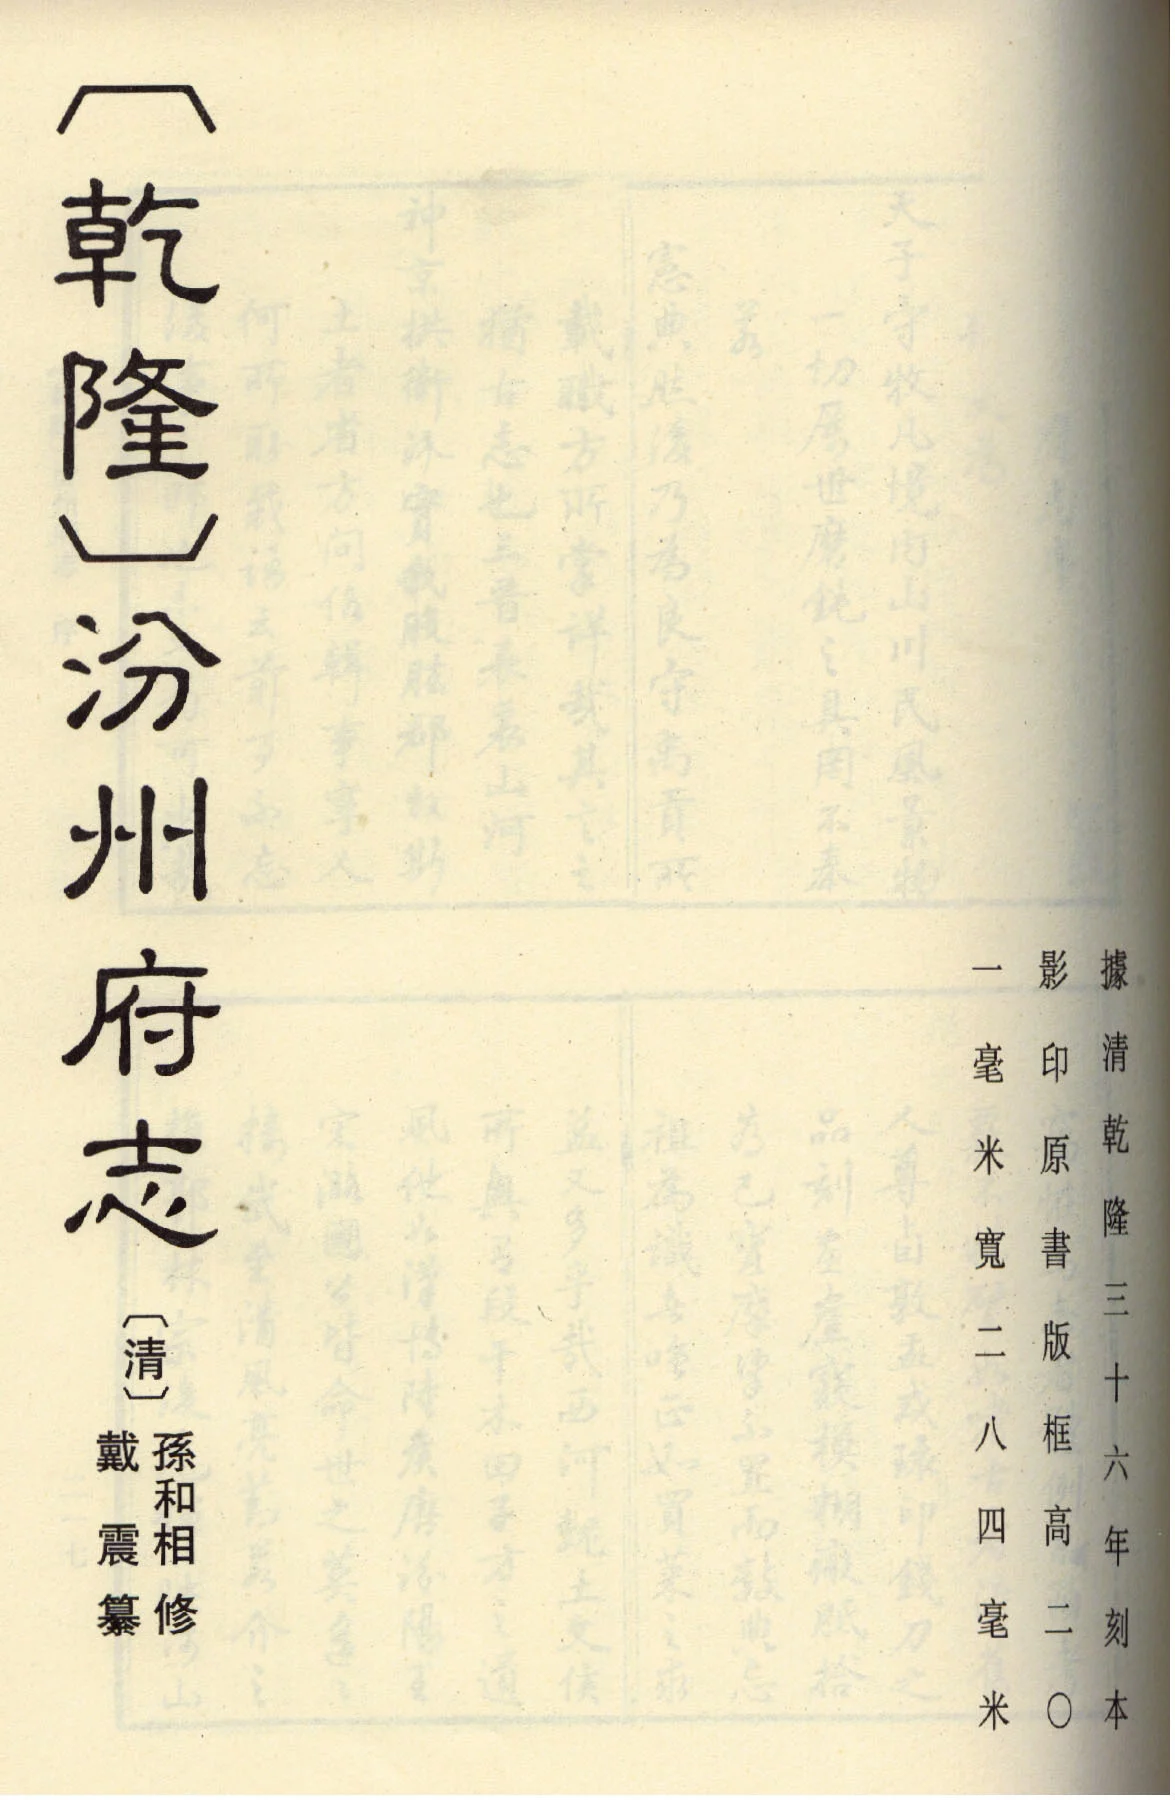 據清乾隆三十六年刻本
影印原書版框高二〇
一毫米寬二八四毫米
〔乾隆〕汾州府志
〔清〕
孫和相 修
戴震 纂